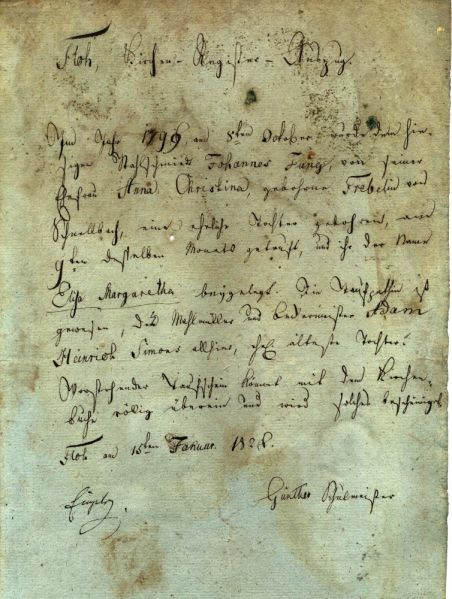 Floh, Kirchen-Register-Auszug.
Im Jahr 1796, am 8ten October wurde dem hie-
sigen Stahlschmidt Johannes Jung, von seiner
Ehefrau Anna Christina, gebohrne Trebelin von
Schnellbach, eine eheliche Tochter gebohren, am
9ten desselben Monats getauft, und ihr der Name
Elisa Margaretha beygelegt. Die Taufpathin ist
gewesen, des Mahlmüller und Adam
Heinrich Simons allhier, ehel. älteste Tochter.
Vorstehender Taufschein kommt mit dem Kirchen-
buche völlig überein und wird solches bescheinigt
Floh am 15ten Januar. 1828.
Günther Schulmeister